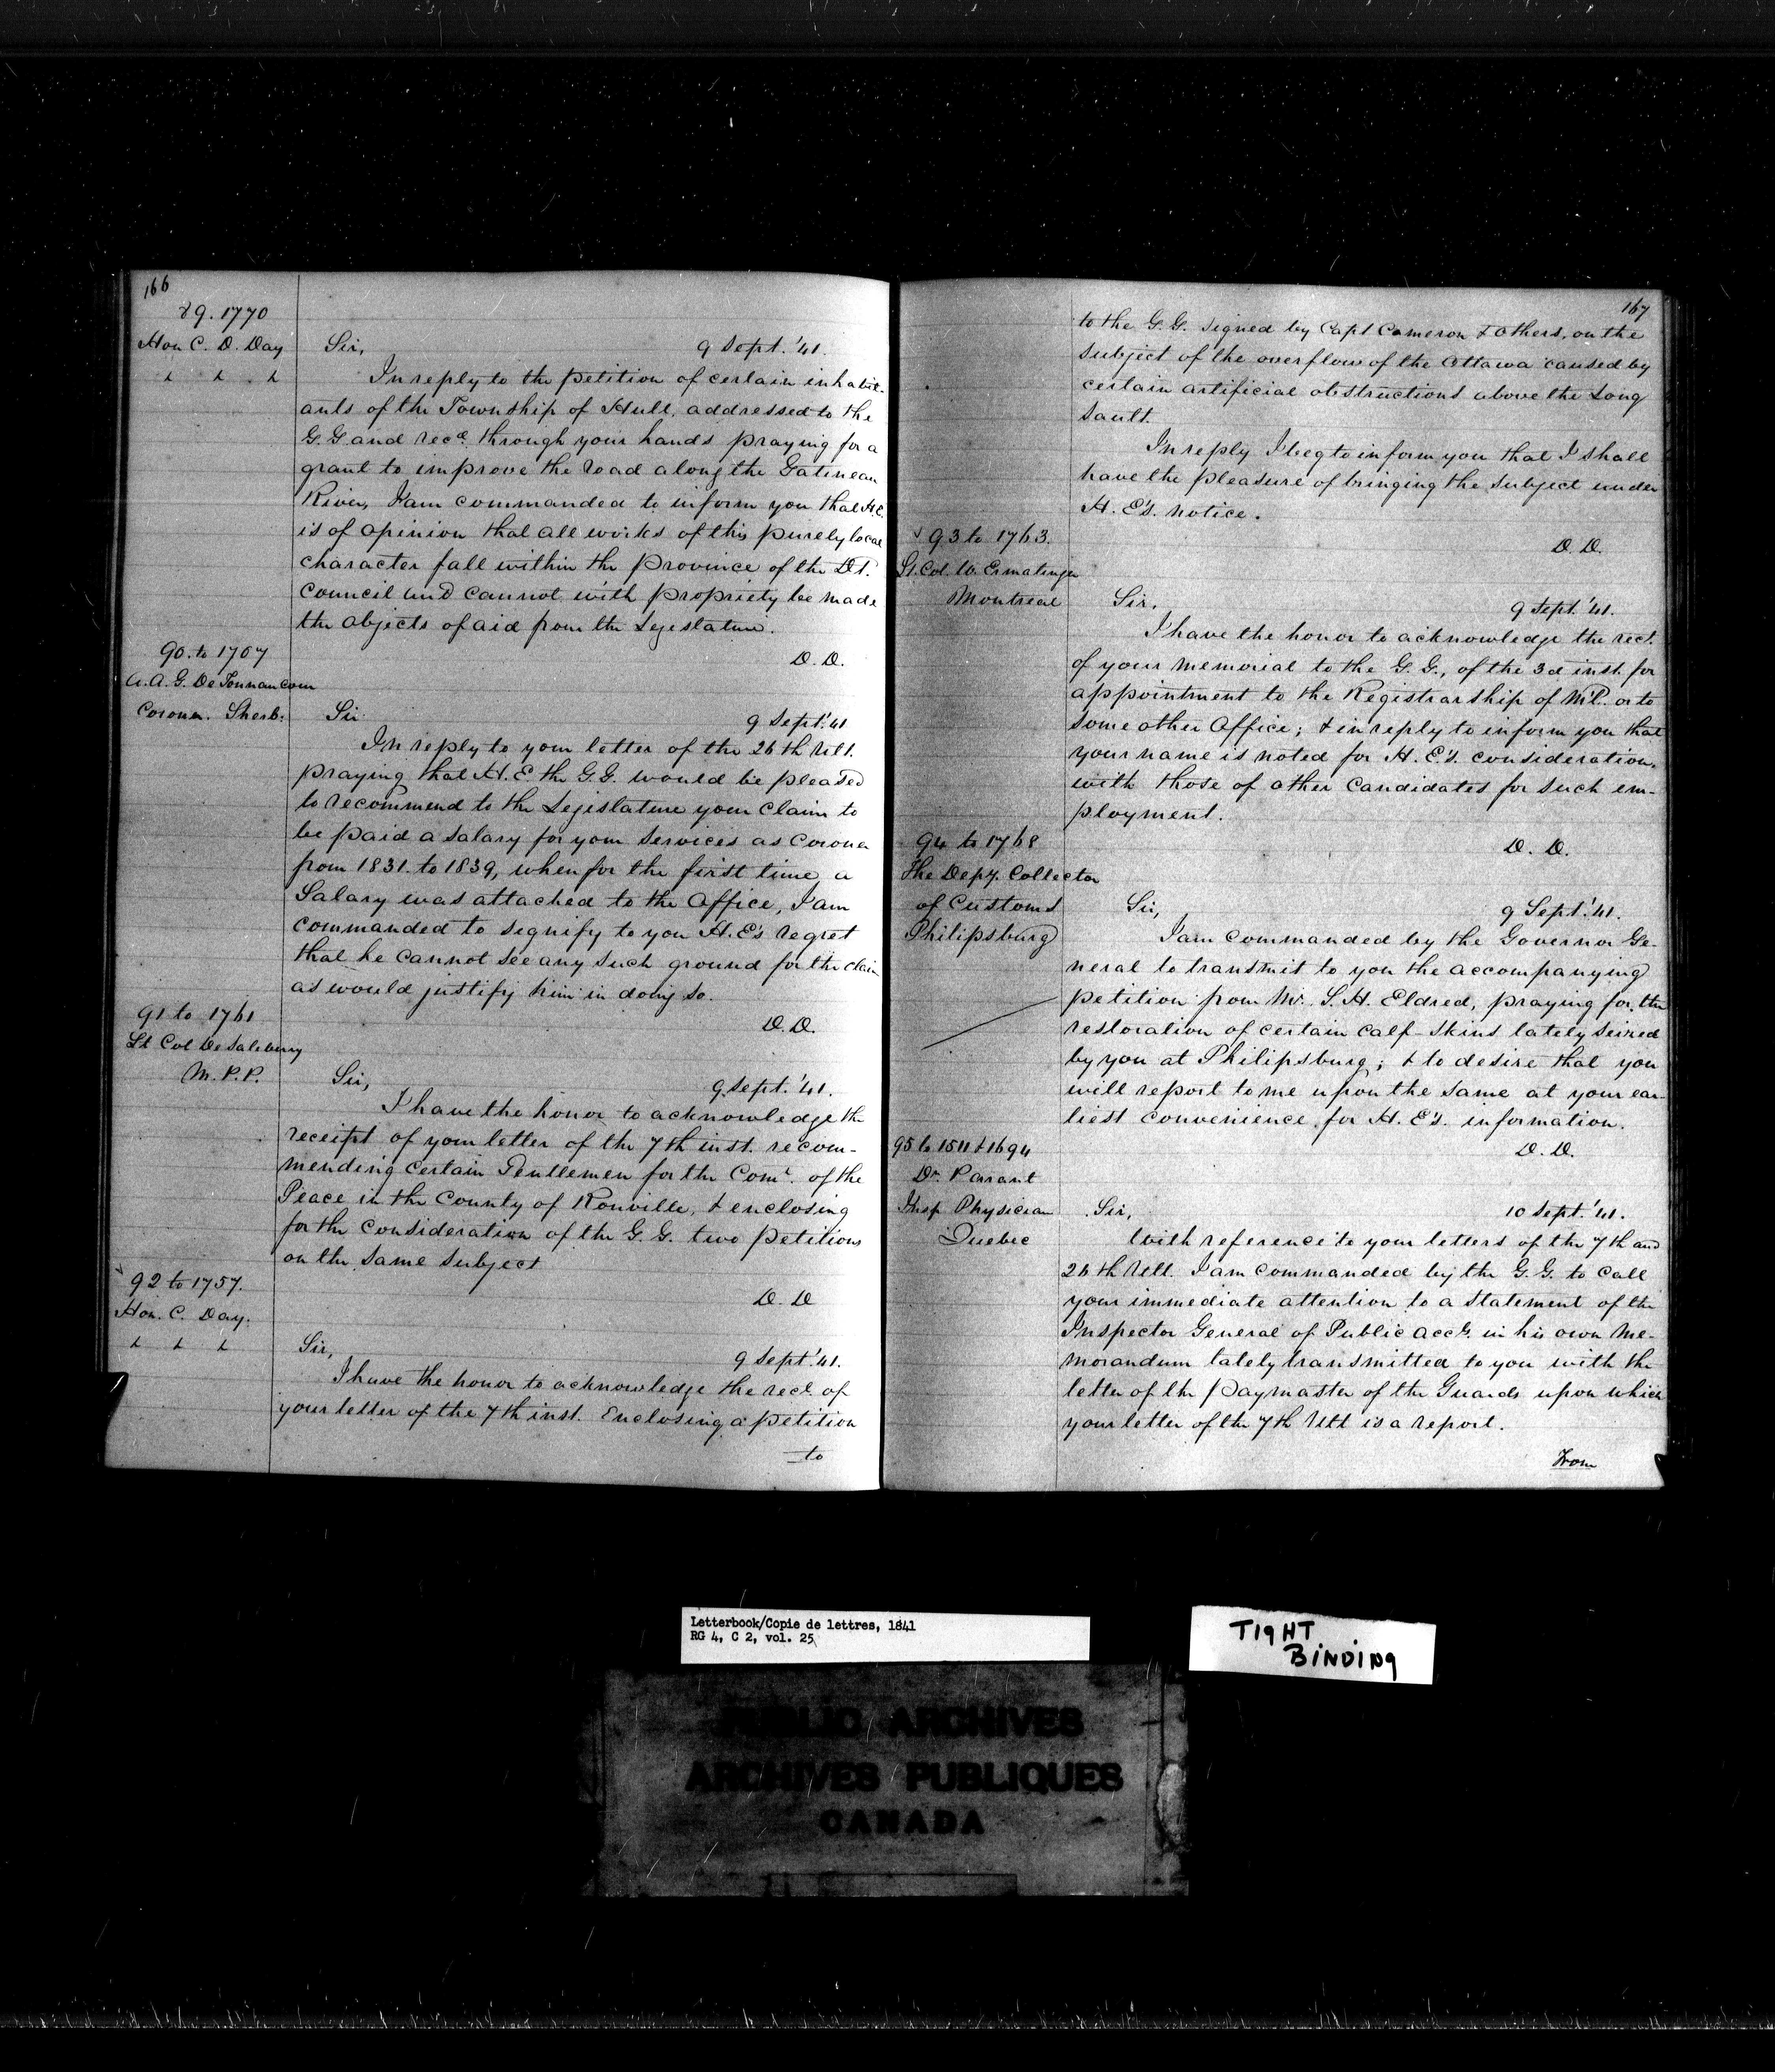 166
89. 1770
Hon C. D. Day
Sir,
9 Sept. '41.
In reply to the petition of certain inhabit-
ants of the Township of Hull, addressed to the
G. G. and recd. through your hands praying for a
grant to improve the road along the Gatineau
River, I am commanded to inform you that H. E.
is of opinion that all works of this purely local
character fall within the Province of the Dt.
Council and cannot with propriety be made
the objects of aid from the Legislature.
D. D.
90. to 1707
A. A. G. De Tonnancour
Coroner. Sherb:
Sir
9 Sept. '41
In reply to your letter of the 26th Ult.
praying that H. E. the G. G. would be pleased
to recommend to the Legislature your claim to
be paid a salary for your services as Coroner
from 1831. to 1839, when for the first time a
Salary was attached to the Office, I am
commanded to signify to you H. E's regret
that he cannot see any such ground for the claim
as would justify him in doing so.
D. D.
91 to 1761
Lt Col De Salaberry
M. P. P.
Sir,
9 Sept. '41.
I have the honor to acknowledge the
receipt of your letter of the 7th inst. recom-
mending certain Gentlemen for the Comn. of the
Peace in the County of Rouville, & enclosing
for the consideration of the G. G. two petitions
on the same subject
D. D
92 to 1757.
Hon. C. Day.
Sir,
9 Sept '41.
I have the honor to acknowledge the rect. of
your letter of the 7th inst. Enclosing a petition
to
167
to the G. G. signed by Capt Cameron & others, on the
subject of the overflow of the Ottawa caused by
certain artificial obstructions above the Long
Sault.
In reply I beg to inform you that I shall
have the pleasure of bringing the subject under
H. E's. notice.
D. D.
93 to 1763.
Lt. Col. W. Ermatinger
Montreal
Sir,
9 Sept. '41.
I have the honor to acknowledge the rect.
of your memorial to the G. G., of the 3d inst. for
appointment to the Registrarship of Ml. or to
some other Office; & in reply to inform you that
your name is noted for H. E's. consideration,
with those of other candidates for such em-
ployment.
D. D.
94 to 1768
The Depy. Collector
of Customs
Philipsburg
Sir,
9 Sept. '41.
I am commanded by the Governor Ge-
neral to transmit to you the accompanying
petition from Mr. S. H. Eldred, praying for the
restoration of certain calf-skins lately seized
by you at Philipsburg; & to desire that you
will report to me upon the same at your ear-
liest convenience for H. E's. information.
D. D.
95 to 1511 & 1694
Dr. Parant
Insp Physician
Quebec
Sir,
10 Sept. '41.
With reference to your letters of the 7th and
26th Ult. I am commanded by the G. G. to call
your immediate attention to a statement of the
Inspector General of Public Accts. in his own Me-
morandum lately transmitted to you with the
letter of the Paymaster of the Guards upon which
your letter of the 7th Ult is a report.
From
Letterbook/Copie de lettres, 1841
RG 4, C 2, vol. 25
TIGHT
BINDING
PUBLIC ARCHIVES
ARCHIVES PUBLIQUES
CANADA